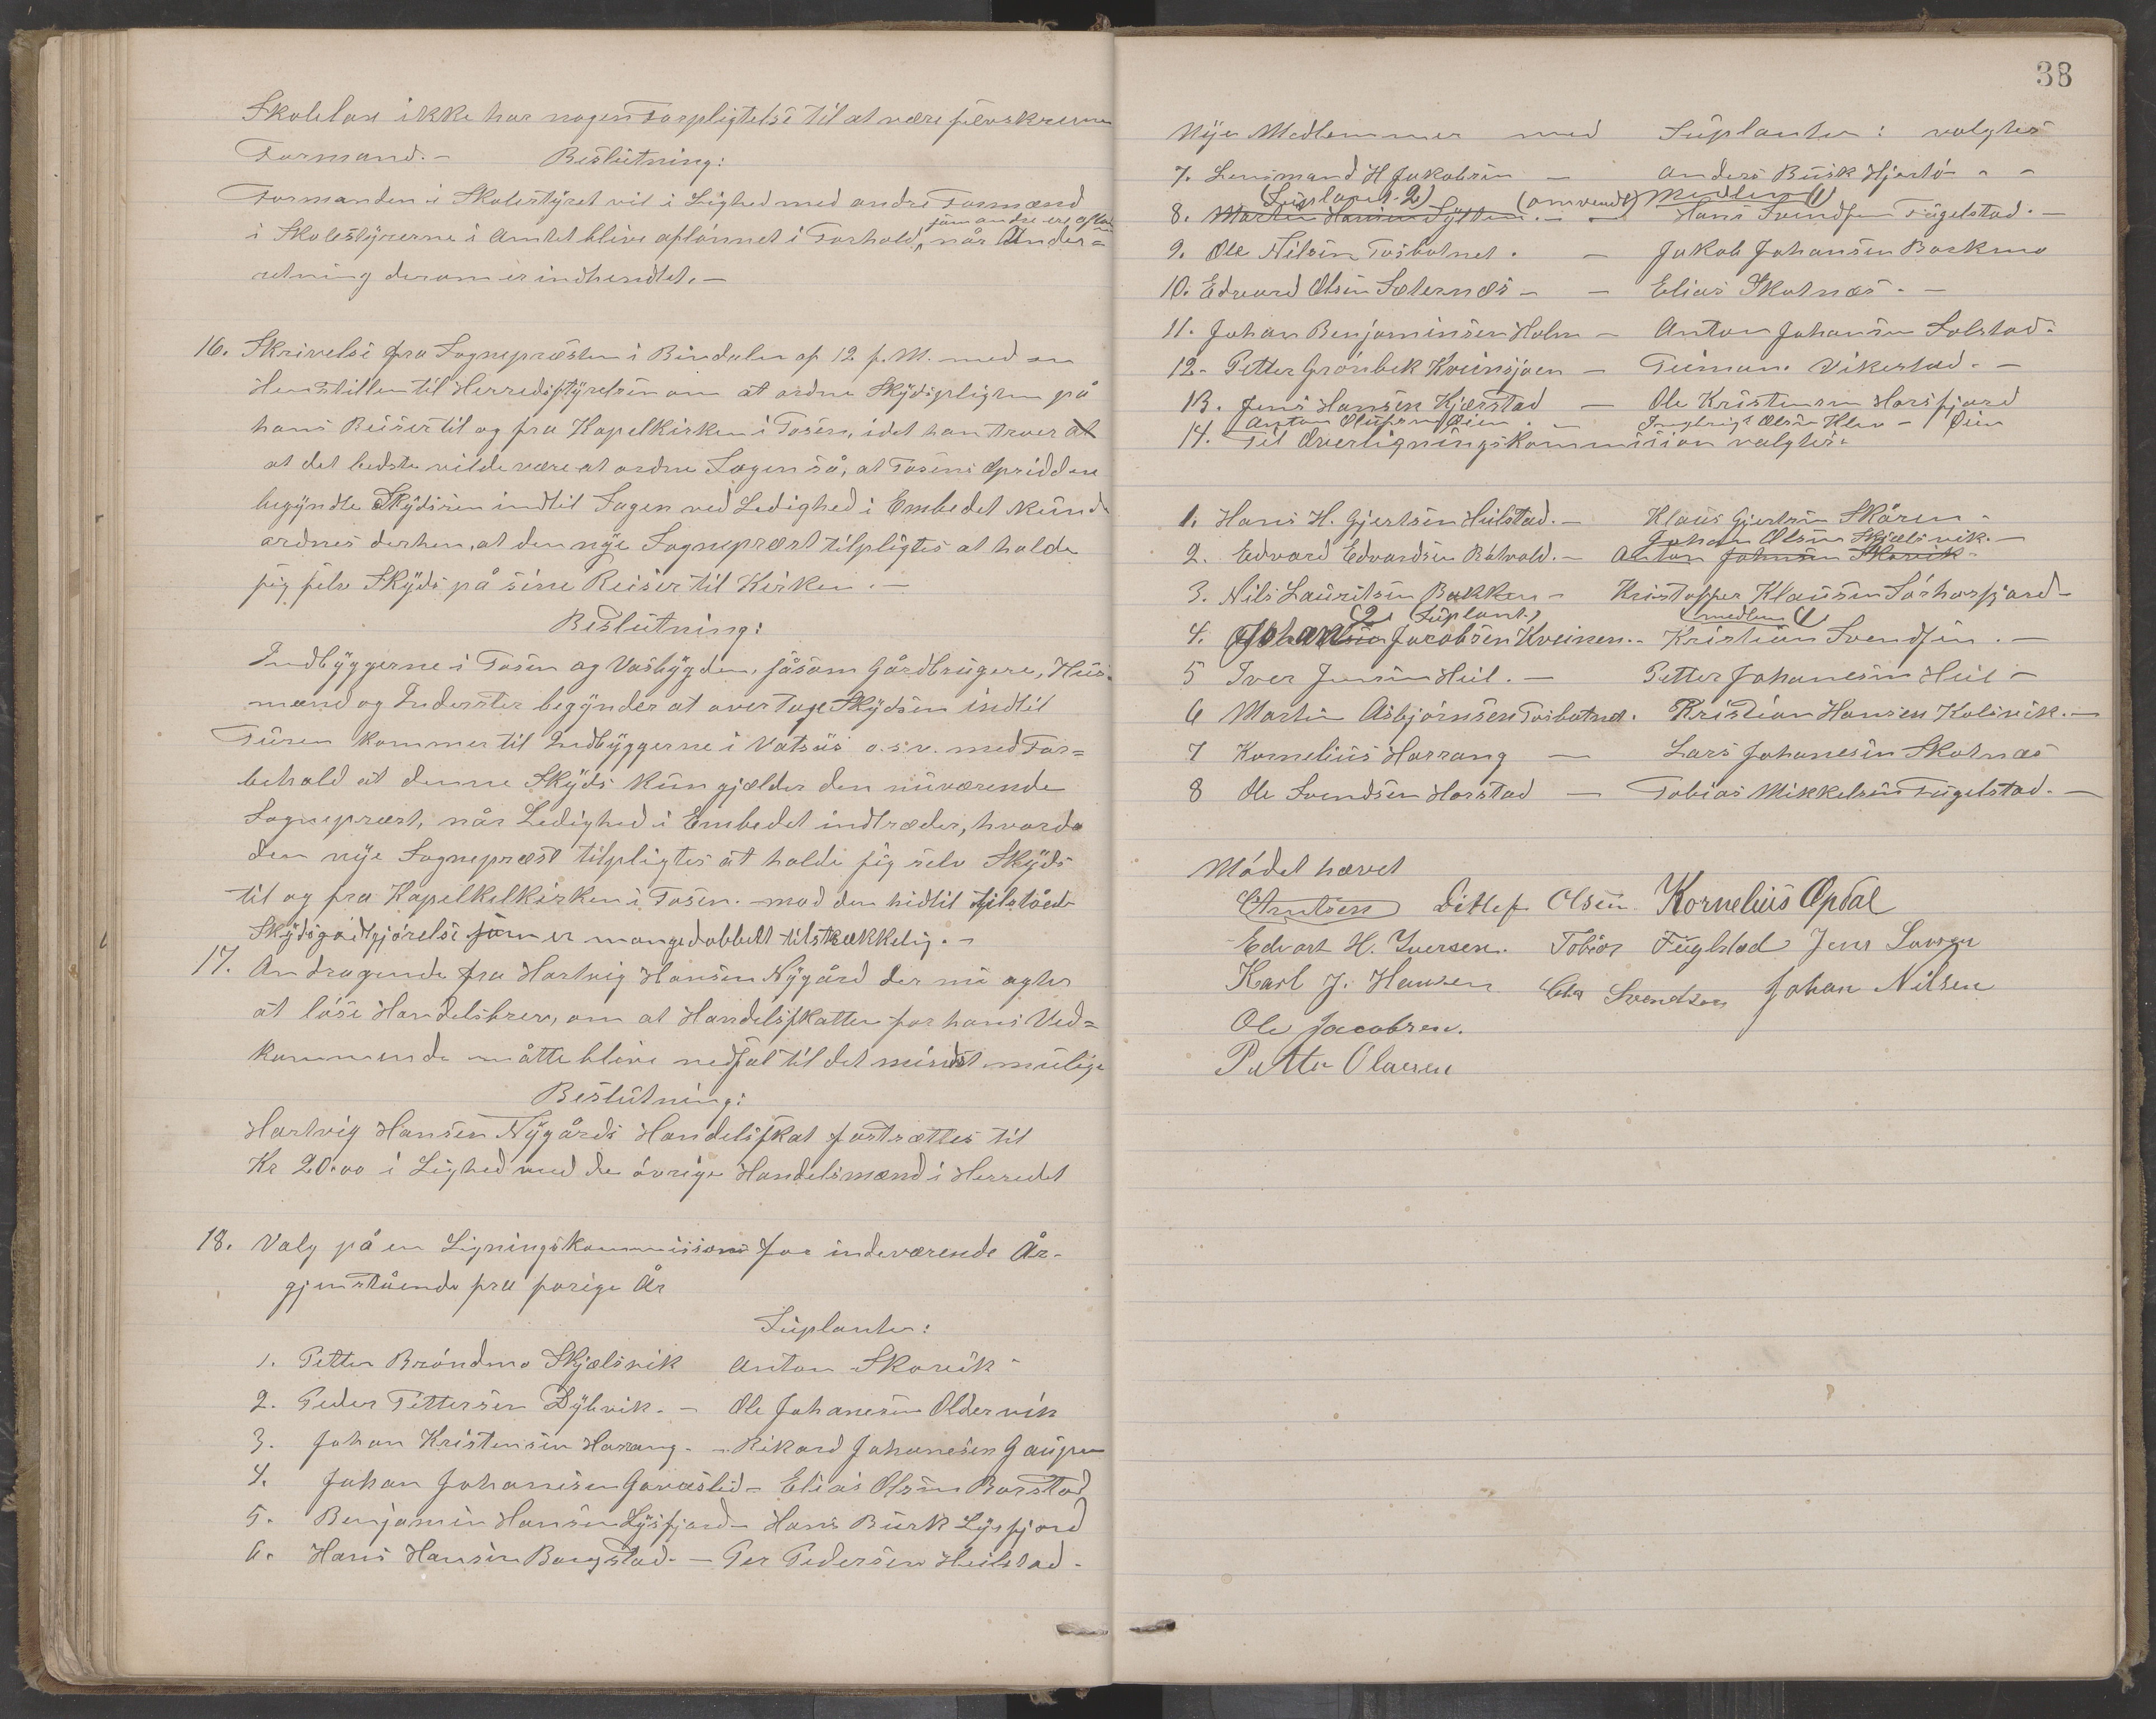 Skolelov ikke har nogen Forpligtelse til at være
Formand. – Beslutning:
Formanden i Skolestyret vil i Lighed med andre Formænd
som andre ere
i Skolestyrerne i Amtet blive aflønnet i Forhold, når Under=
retning derom er indhendtet. –
16. Skrivelse fra Sognepræsten i Bindalen af 12 f. M. med en
Henstillen til Herredsstyrelsen om at ordne Skydspligten på
hans Reiser til og fra Kapelkirken i Tosen, idet han troer at
at det bedste vilde være at ordne Sagen så, at Tosens Opsiddere
begyndte Skydsen indtil Sagen ved Ledighed i Embedet kunde
ordnes derhen, at den nye Sognepræst tilpligtes at holde
sig selv Skyds på sine Reiser til Kirken. –
Beslutning:
Indbyggerne i Tosen og Vasbygden, såsom Gårdbrugere, Hus-
mænd og Inderster begynder at overtage Skydsen indtil
Turen kommer til Indbyggerne i Vatsås o.s.v. med For=
behold at denne Skyds kun gjælder den nuværende
Sognepræst, når Ledighed i Embedet indtræder, hvorda
den nye Sognepræst tilpligtes at holde sig selv Skyds
til og fra Kapelkelkirken i Tosen. – mod den hidtil tilståede
Skydsgodtgjørelse som er mangedobbelt tilstrækkelig. –
17. Andragende fra Hartvig Hansen Nygård der nu agter
at løse Handelsbrev, om at Handelsskatten for hans Ved=
kommende måtte blive nedsat til det mindst mulige
Beslutning:
Hartvig Hansen Nygårds Handelsskat fastsættes til
Kr 20.00 i Lighed med de øvrige Handelsmænd i Herredet
18. Valg på en Ligningskommission for indeværende År –
gjenstående fra forige År
Suplanter:
1. Petter Brøndmo Skjælsvik Anton Skovik –
2. Peder Pettersen Dybvik. – Ole Johanesen Oldervik
3. Johan Kristensen Harang. – Rikard Johanesen Gaupen
4. Johan Johanesen Gavaslid – Elias Olsen Barstad
5. Benjamin Hansen Lysfjord – Hans Burk Lysfjord
6. Hans Hansen Bangstad. – Per Pedersen Heilstad –
38
Nye Medlemmer med Suplanter: valgtes
7. Lensmand H Jakobsen – Anders Busk Hjortø – –
(Suplant 2) (omvendt) Medlem (1)
8. Martin Hansen – Hans Svendsen Fugelstad. –
9. Ole Nilsen Tosbotnet. – Jakob Johansen Bockmo
10. Edvard Olsen Sæternæs – – Elias Skotnæs. –
11. Johan Benjaminsen Holm – Anton Johansen Solstad.
12. Petter Grønbek Kveinsjøen – Teiman Vikestad. –
13. Jens Hansen Kjærstad – Ole Kristensen Horsfjord
Anton Olufsen Øien. – Olsen
14. Til Overligningskommission valgtes:
1. Hans H. Gjertsen Heilstad. – Klaus Gjertsen Skåren –
Johan Olsen Skjælsvik. –
2. Edvard Edvardsen Båtvold. – Anton Johnsen Skovik –
3. Nils Lauritsen Bakken – Kristoffer Klausen Sørhorsfjord –
(2 Suplant.) medlem (1
4. Johan Jacobsen Kveinen. – Kristian Svendsen. –
5 Iver Jensen Heil. – Petter Johanesen Heil –
6 Martin Asbjørnsen Tosbotnet. Kristian Hansen Kolsvik. –
7 Kornelius Harrang – Lars Johanesen Skotnæs
8 Ole Svendsen Horstad – Tobias Mikkelsen Fugelstad. –
Mødet hævet
CArntsen Ditlef Olsen Kornelius Opdal
Edvart H. Iversen. Tobias Fuglstad Jens Larsen
Karl J. Hansen Svendsen Johan Nilsen
Ole Jacobsen.
Petter Olausen